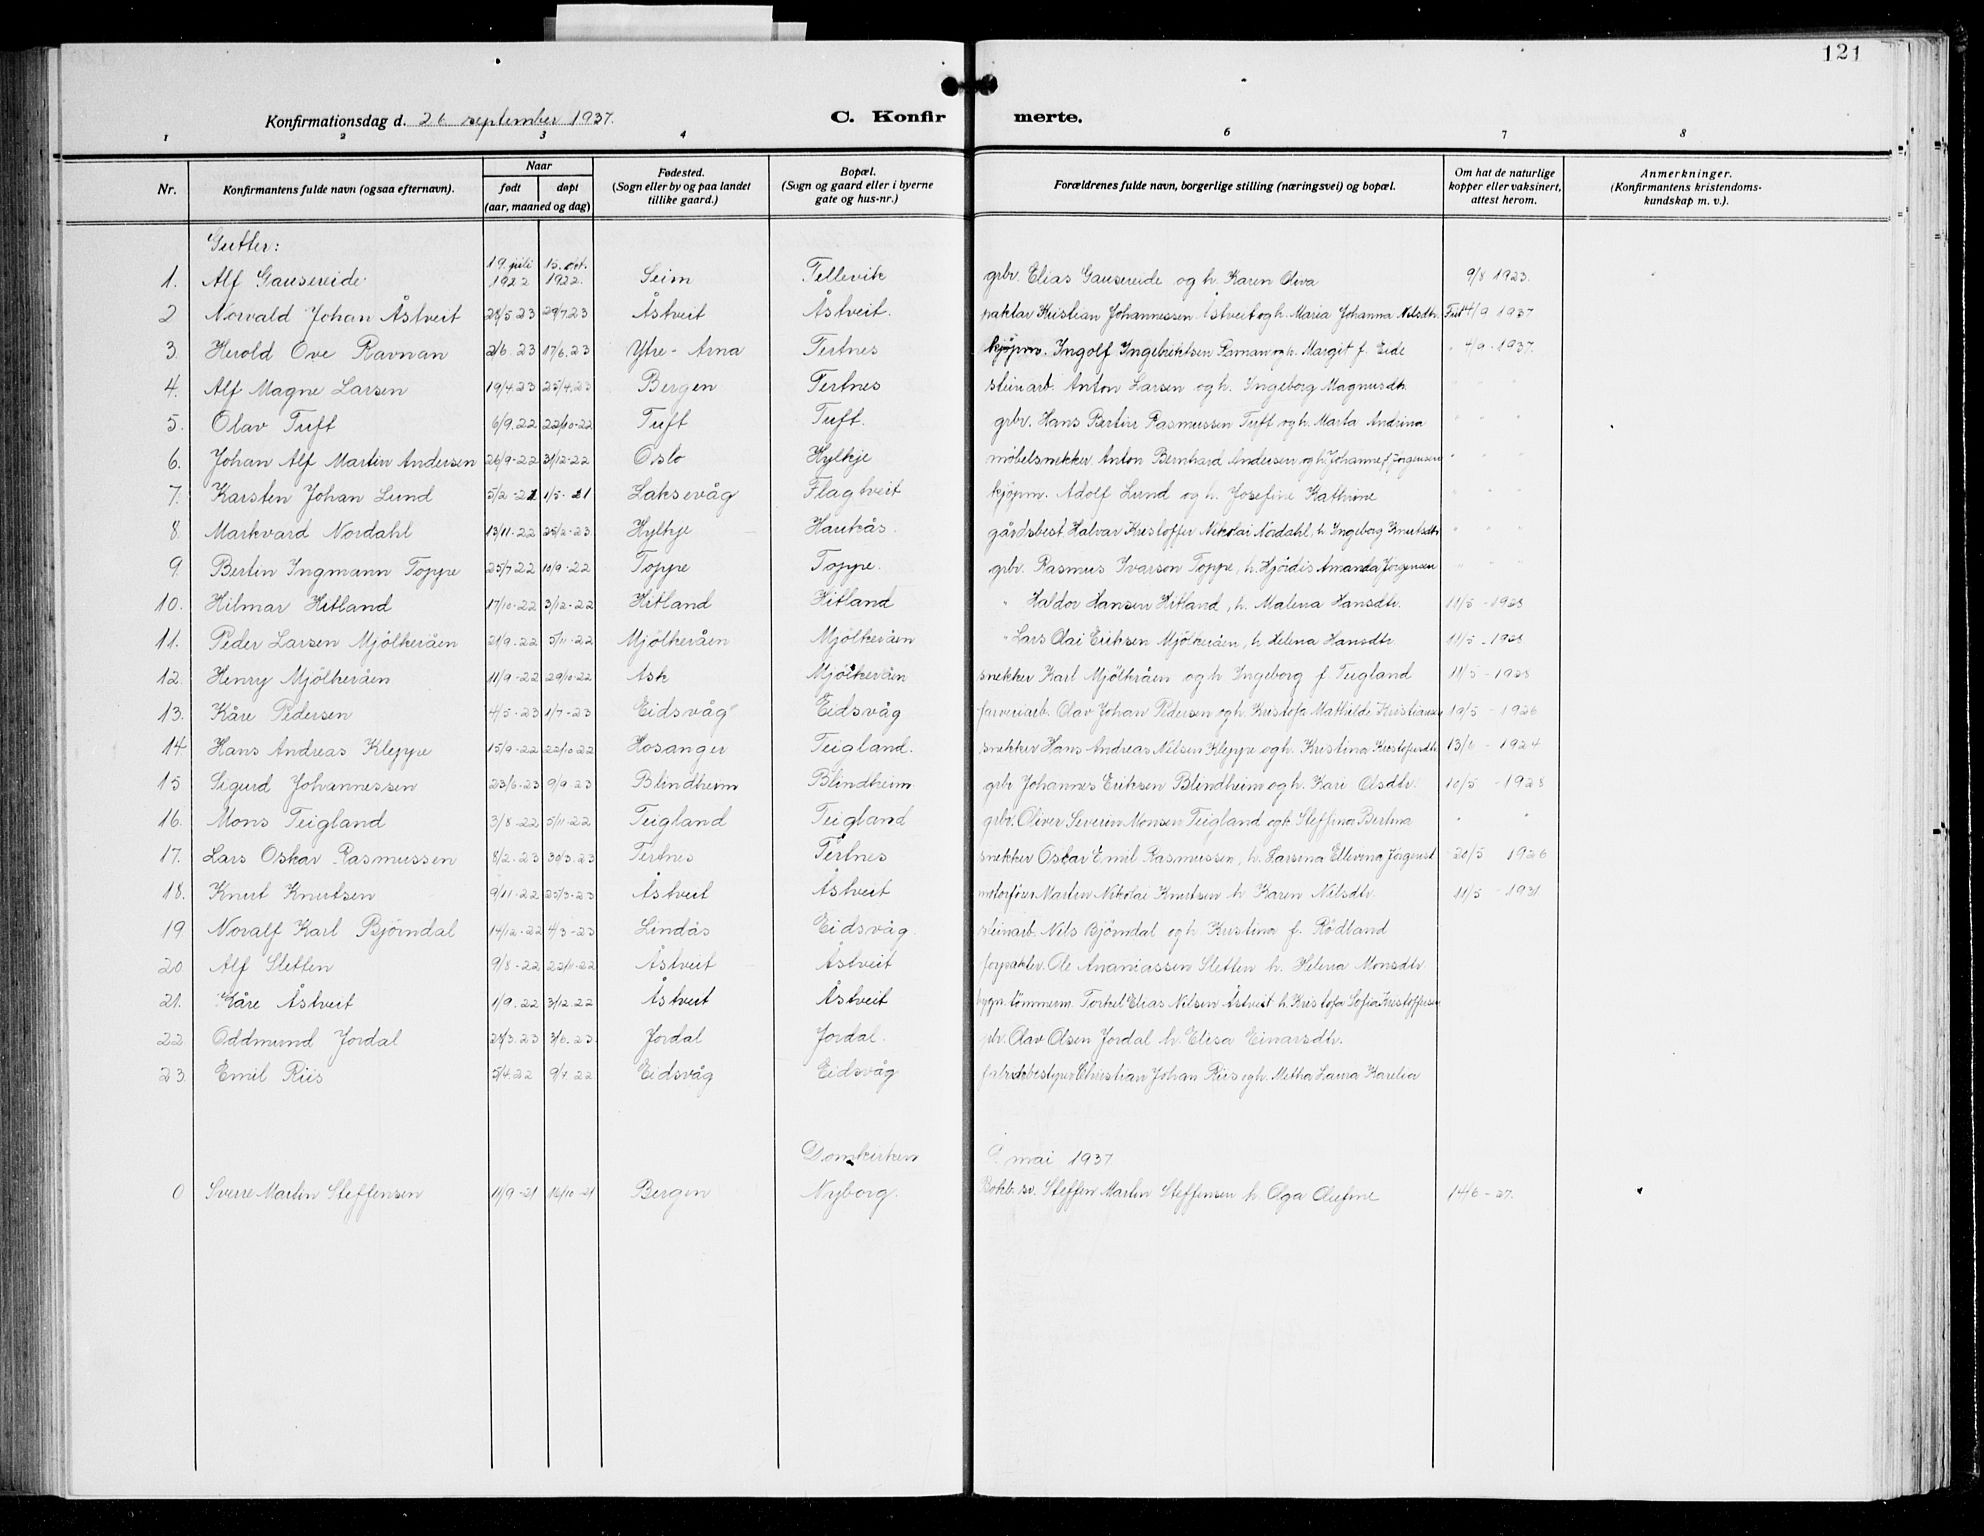 121
Konfirmationsdag d. 26 september 1937. C. Konfirmerte.
1 2 3 4 6 7 8
Nr. Konfirmantens fulde navn (ogsaa efternavn). Naar født døpt (aar, maaned og dag) Fødested. (Sogn eller by og paa landet tillike gaard.) Bopæl. (Sogn og gaard eller i byerne gate og hus-nr.) Forældrenes fulde navn, borgerlige stilling (næringsvei) og bopæl. Om hat de naturlige kopper eller vaksinert, attest herom. Anmerkninger. (Konfirmantens kristendoms-kundskap m. v.).
Gutter:
1. Alf Gausereide 19. juli 1922 15. oct. 1922. Seim Tellevik grbr. Elias Gausereide og h. Karen Oliva 9/8 1923.
2 Norvald Johan Åstveit 28/5 23 29/7 23 Åstveit Åstveit. paktar Kristian Johannessen Åstveit og h. Maria Johanna Nilsdtr. 4/9 1937
3. Herold Ove Ravnan 2/6. 23 17/6. 23 Ytre-Arna Tertnes kjøpm. Ingolf Ingebriktsen Raman og h. Margit f. Eide " 4/9 - 1937.
4. Alf Magne Larsen 19/4 23 25/4. 23 Bergen Tertnes steinarb. Anton Larsen og h. Ingeborg Magnusdtr. " " "
5. Olav Tuft 6/9. 22 22/10-22 Tuft Tuft. grbr. Hans Bertin Rasmussen Tuft og h. Marta Andrina " " "
6. Johan Alf Martin Andersen 26/9-22 31/12-22 Oslo Hylkje møbelsnekker Anton Bernhard Andersen og h. Johanne f. Jørgensen " " "
7. Karsten Johan Lund 5/2-21 1/5-21 Laksevåg Flagtveit kjøpm. Adolf Lund og h. Josefine Kathrine " " "
8. Markvard Nordahl 13/11-22 25/2-23 Hylkje Haukås. gårdsbest Halvar Kristoffer Nikolai Nordahl, h Ingeborg Knutsdtr " " "
9. Bertin Ingmann Toppe 25/7 22 10/9-22 Toppe Toppe. grbr. Rasmus Ivarson Toppe, h. Hjördis Amanda Jørgensen " " "
10. Hilmar Hitland 17/10-22 3/12-22 Hitland Hitland " Haldor Hansen Hitland, h. Malena Hansdtr. 11/5 - 1928
11. Peder Larsen Mjölkeråen 21/9-22 5/11-22 Mjölkeråen Mjölkeråen " Lars Olai Eriksen Mjölkeråen, h. Helena Hansdtr 11/5 - 1928
12. Henry Mjölkeråen 11/9-22 29/10-22 Ask Mjölkeråen snekker Karl Mjölkråen og h Ingeborg f. Teigland 11/5 - 1928
13. Kåre Pedersen 4/5-23 1/7-23 Eidsvåg Eidsvåg farveriarb. Olav Johan Pedersen og h. Kristofa Mathilde Kristiansen 19/5 - 1926
14 Hans Andreas Kleppe 15/9-22 22/10 22 Hosanger Teigland. snekker Hans Andreas Nilsen Kleppe og h. Kristina Kristofersdtr 13/6 - 1924
15 Sigurd Johannessen 23/6-23 9/9 23 Blindheim Blindheim grbr Johannes Eriksen Blindheim og h. Kari Olsdtr. 10/5 - 1928
16. Mons Teigland 3/8-22 5/11-22 Teigland Teigland grbr. Oliver Severin Monsen Teigland og h Steffina Bertina " "
17. Lars Oskar Rasmussen 8/2. 23 30/3. 23 Tertnes Tertnes snekker Oskar Emil Rasmussen, h. Larsina Ellevina Jörgensd 20/5 1926
18. Knut Knutsen 9/11-22 25/3-23 Åstveit Åstveit motorfører Martin Nikolai Knutsen h Karen Nilsdtr. 11/5 - 1931
19 Noralf Karl Bjørndal 14/12-22 4/3-23 Lindås Eidsvåg. steinarb. Nils Bjørndal og h Kristina f. Rødland
20 Alf Sletten 9/8-22 22/10-22 Åstveit Åstveit forpakter. Ole Ananiassen Sletten h. Helena Monsdtr
21. Kåre Åstveit 1/9. 22 3/12. 22 Åstveit Åstveit bygn. tömmerm. Torkel Elias Nilsen Åstveit h Kristofa Sofia Kristoffersen
22 Oddmund Jordal 28/3. 23 3/6. 23 Jordal Jordal. Olav Olsen Jordal h. Elisa Einarsdtr.
23. Emil Riis 5/4 22 9/7 22 Eidsvåg Eidsvåg fabrikbestyrer Christian Johan Riis og h. Metha Laura Karelia
Domkirken 9. mai 1937
0 Sverre Martin Steffensen 11/9-21 16/10-21 Bergen Nyborg. Steffen Martin Steffensen h. Olga Olufine 14/6 - 27.